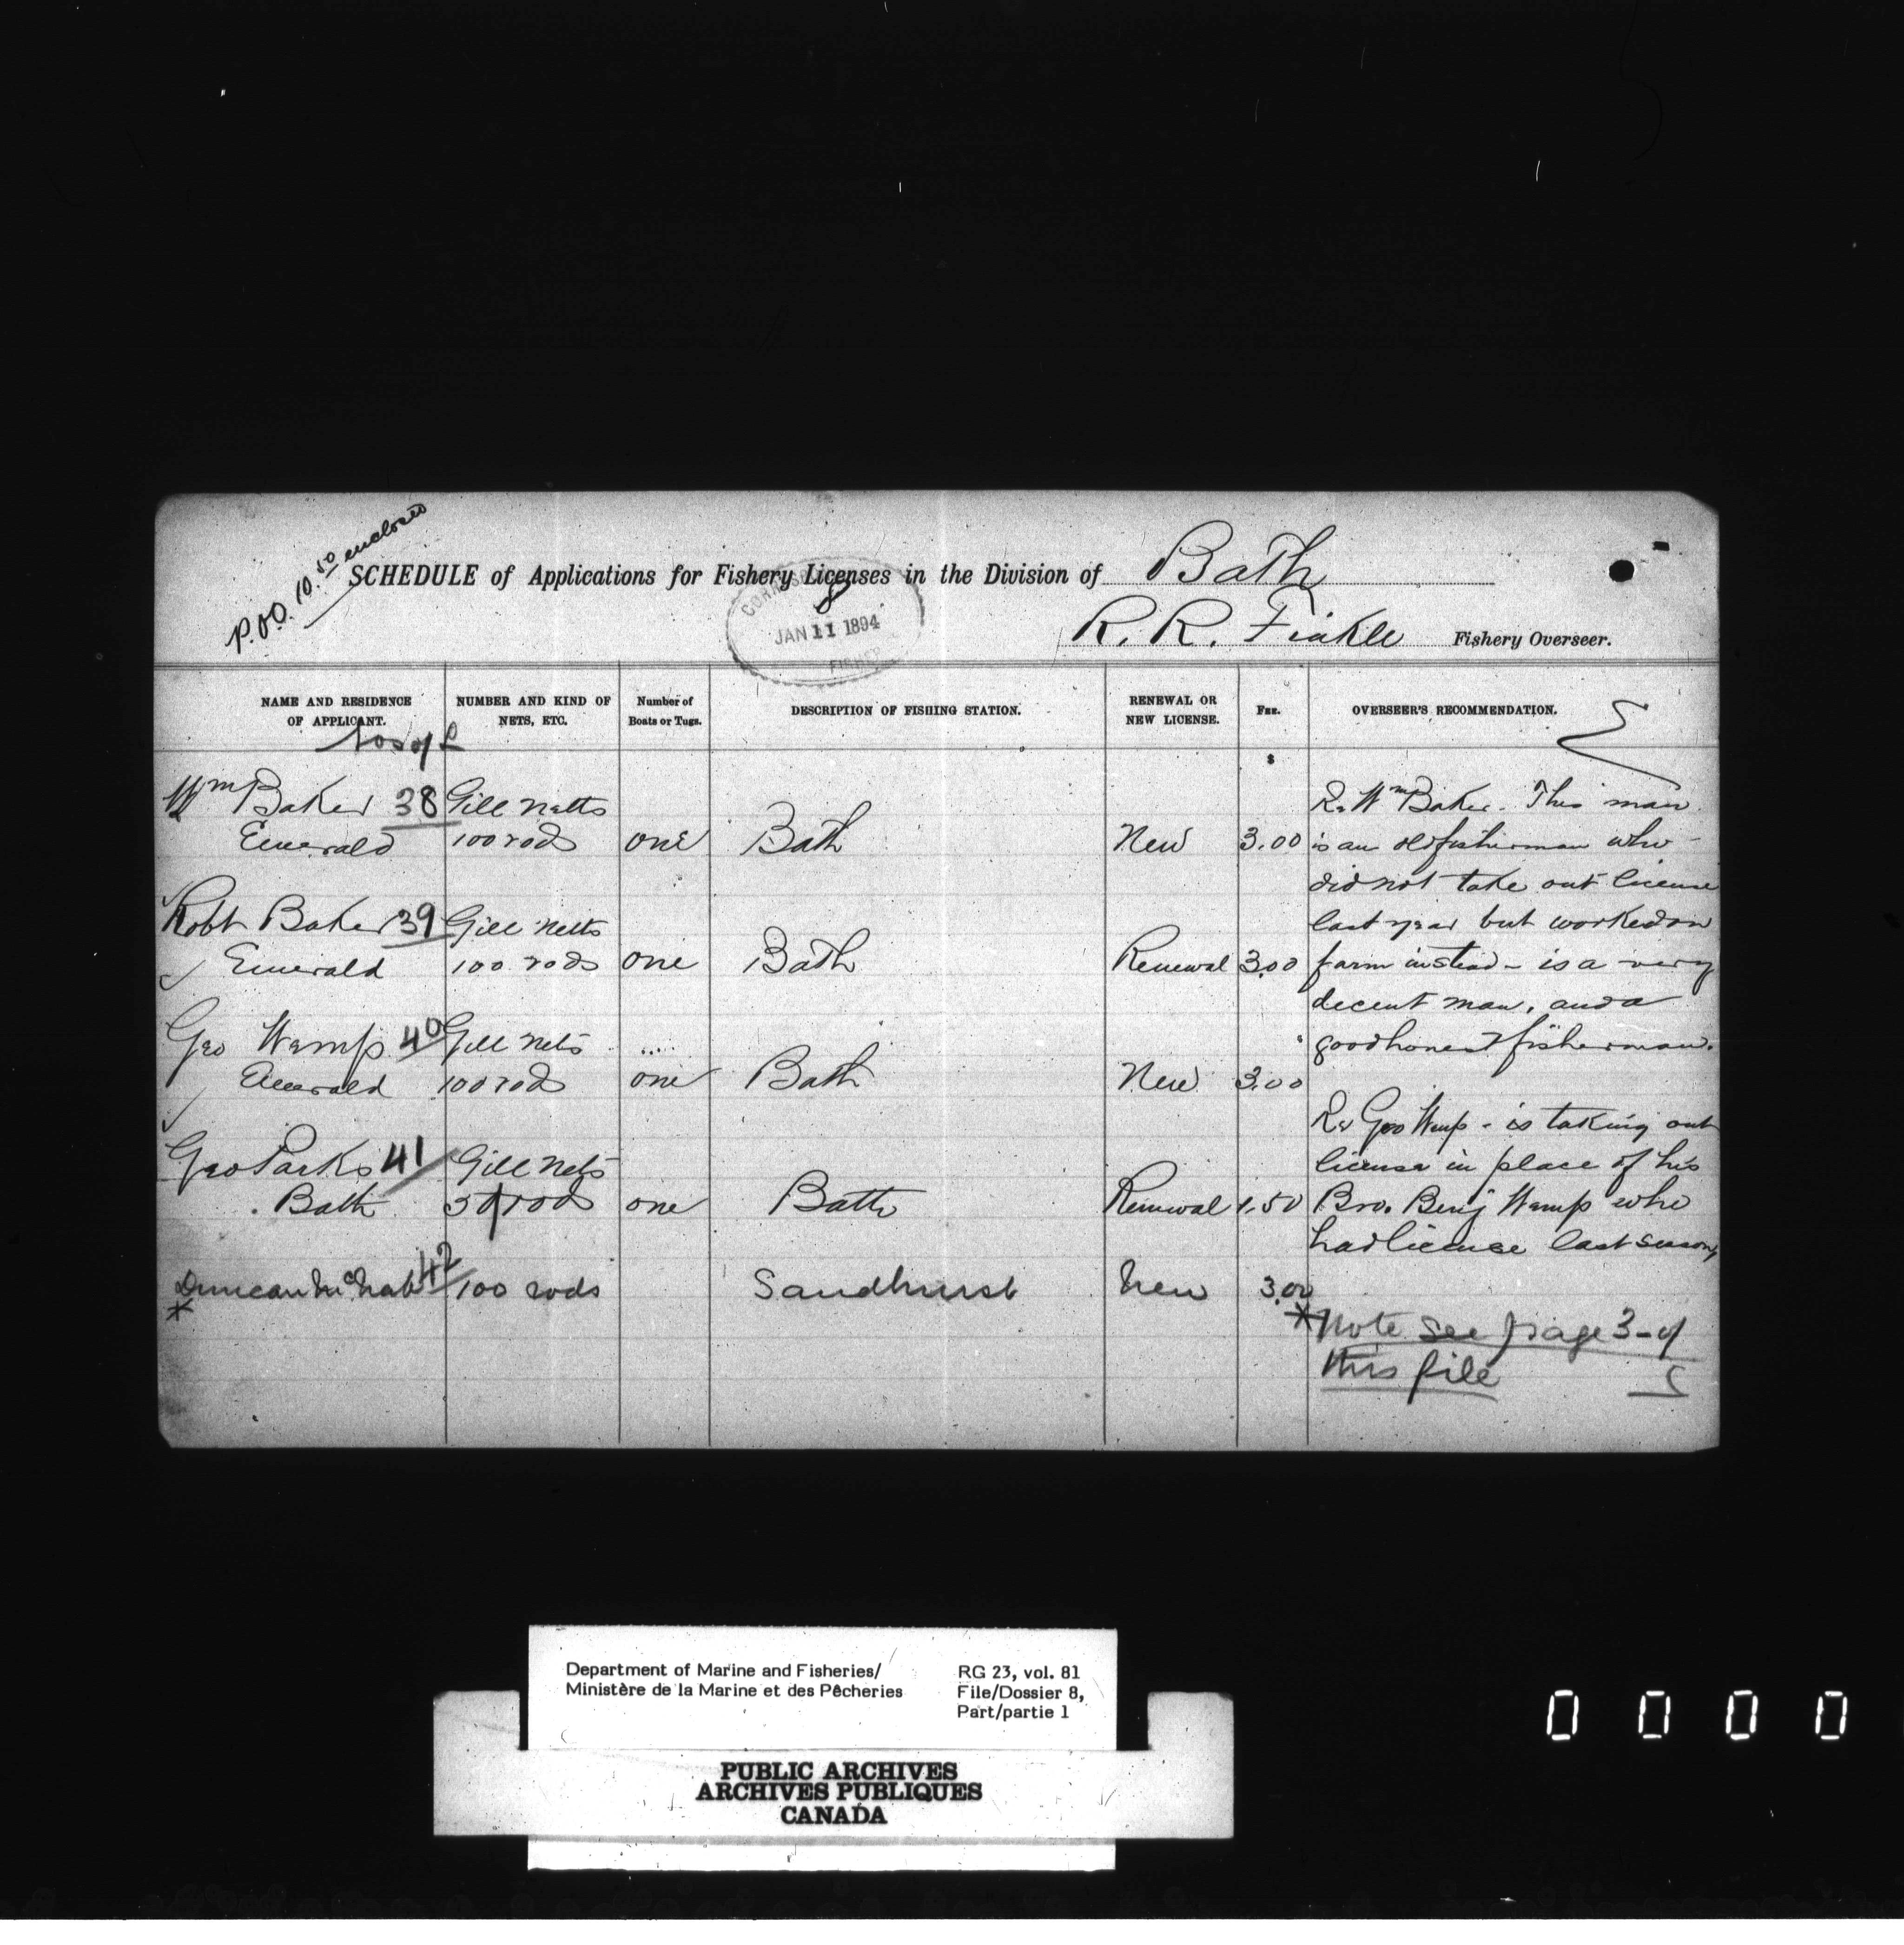 P.O.O. 10.50 enclosed
SCHEDULE of Applications for Fishery Licenses in the Division of Bath
8
JAN 11 1894
R. R. Finkle Fishery Overseer.
NAME AND RESIDENCE OF APPLICANT.
NUMBER AND KIND OF NETS, ETC.
Number of Boats or Tugs.
DESCRIPTION OF FISHING STATION.
RENEWAL OR NEW LICENSE.
FEE.
OVERSEER'S RECOMMENDATION.
Nos of L
$
Wm Baker 38 Gill netts
Emerald 100 rods one Bath New 3.00
Robt Baker 39 Gill Netts
Emerald 100 rods one Bath Renewal 3.00
Geo Wemp 40 Gill Nets
Emerald 100 rods one Bath New 3.00
Geo Parks 41 Gill Nets
Bath 50 rods one Bath Renewal 1.50
Duncan McNab 42 100 rods Sandhurst New 3.00
*
Re Wm Baker. This man
is an old fisherman who
did not take out license
last year but worked on
farm instead - is a very
decent man, and a
good honest fisherman.
Re Geo Wemp - is taking out
license in place of his
Bro. Benj Wemp who
had license last season
* Note see page 3 - of
this file
Department of Marine and Fisheries/
Ministère de la Marine et des Pêcheries
RG 23, vol. 81
File/Dossier 8,
Part/partie 1
PUBLIC ARCHIVES
ARCHIVES PUBLIQUES
CANADA
0 0 0 0